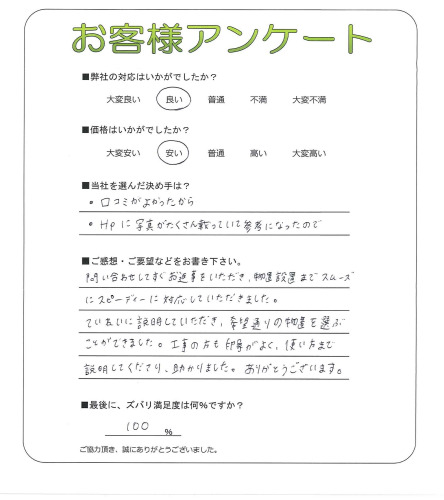 お客様アンケート
■弊社の対応はいかがでしたか？
大変良い 良い 普通 不満 大変不満
■価格はいかがでしたか？
大変安い 安い 普通 高い 大変高い
■当社を選んだ決め手は？
・口コミがよかったから
・HPに写真がたくさん載っていて参考になったので
■ご感想・ご要望などをお書き下さい。
問い合わせしてすぐお返事をいただき、物置設置までスムーズ
にスピーディーに対応していただきました。
ていねいに説明していただき、希望通りの物置を選ぶ
ことができました。工事の方も印象がよく、使い方まで
説明してくださり、助かりました。ありがとうございます。
■最後に、ズバリ満足度は何%ですか？
100 %
ご協力頂き、誠にありがとうございました。